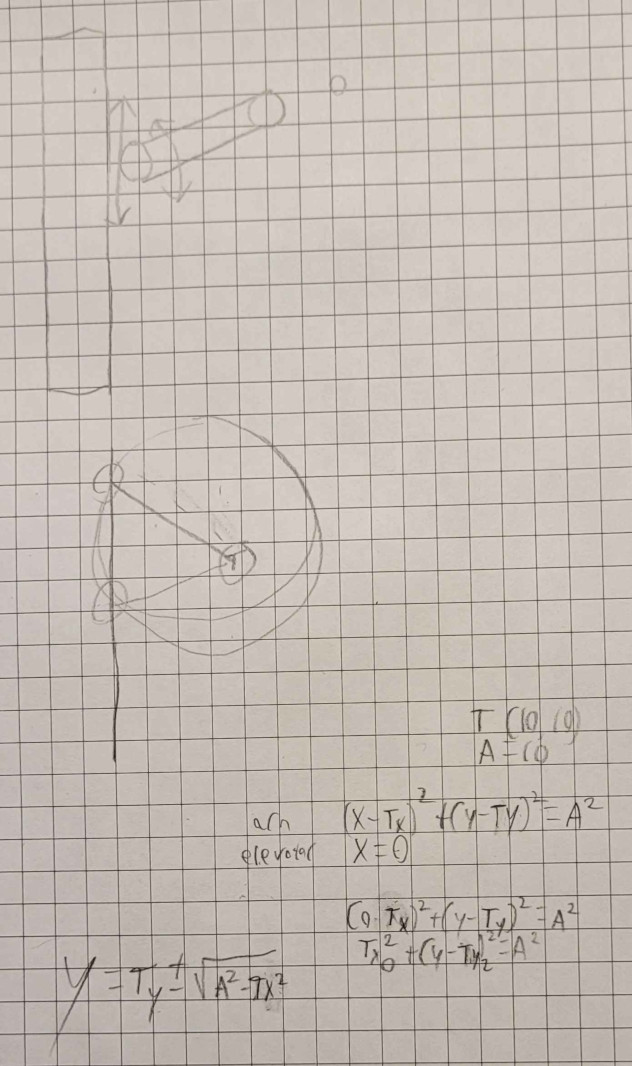 T
T (10, 10)
A = 10
arm (x-Tx)² + (y-Ty)² = A²
elevator x = 0
(0-Tx)² + (y-Ty)² = A²
Tx² + (y-Ty)² = A²
y = Ty ± √A² - Tx²